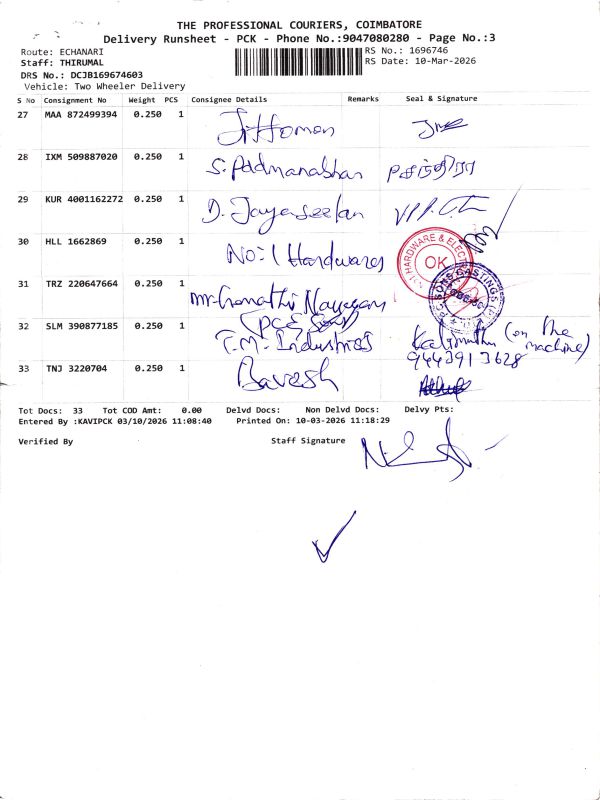 THE PROFESSIONAL COURIERS, COIMBATORE
Delivery Runsheet - PCK - Phone No.:9047080280 - Page No.:3
Route: ECHANARI
RS No.: 1696746
Staff: THIRUMAL
RS Date: 10-Mar-2026
DRS No.: DCJB169674603
Vehicle: Two Wheeler Delivery
S No Consignment No Weight PCS Consignee Details Remarks Seal & Signature
27 MAA 872499394 0.250 1
28 IXM 509887020 0.250 1 S. Padmanabhan
29 KUR 4001162272 0.250 1 D. Jayaseelan
30 HLL 1662869 0.250 1 No:1 Hardwares
HARDWARE & ELECT
OK
31 TRZ 220647664 0.250 1 Mr. Gomathi Nayagam
32 SLM 390877185 0.250 1 T.M. Industries Kalimuthu (on the machine)
9443913628
33 TNJ 3220704 0.250 1 Bavesh
Tot Docs: 33 Tot COD Amt: 0.00 Delvd Docs: Non Delvd Docs: Delvy Pts:
Entered By :KAVIPCK 03/10/2026 11:08:40 Printed On: 10-03-2026 11:18:29
Verified By Staff Signature